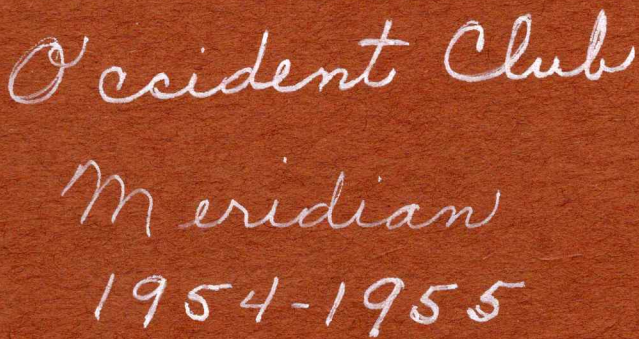 Occident Club
Meridian
1954-1955